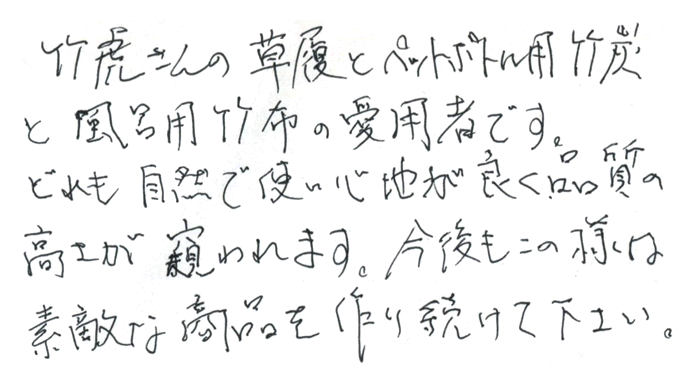 竹虎さんの草履とペットボトル用竹炭
と風呂用竹布の愛用者です。
どれも自然で使い心地が良く品質の
高さが窺われます。今後もこの様な
素敵な商品を作り続けて下さい。